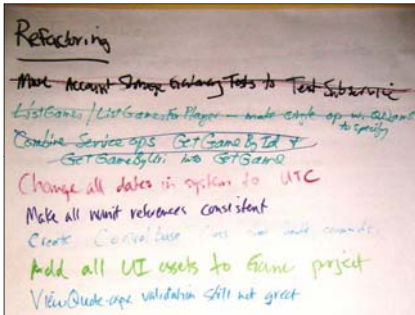 Refactoring
Move Account Storage Gateway Tests to Test Subservice
ListGames/ListGamesForPlayer - make single op w. to specify
Combine Service ops GetGameById &
GetGameByUri into GetGame
Change all dates in system to UTC
Make all nunit references consistent
Create class
Add all UI assets to Game project
ViewQuote-aspx validation still not great